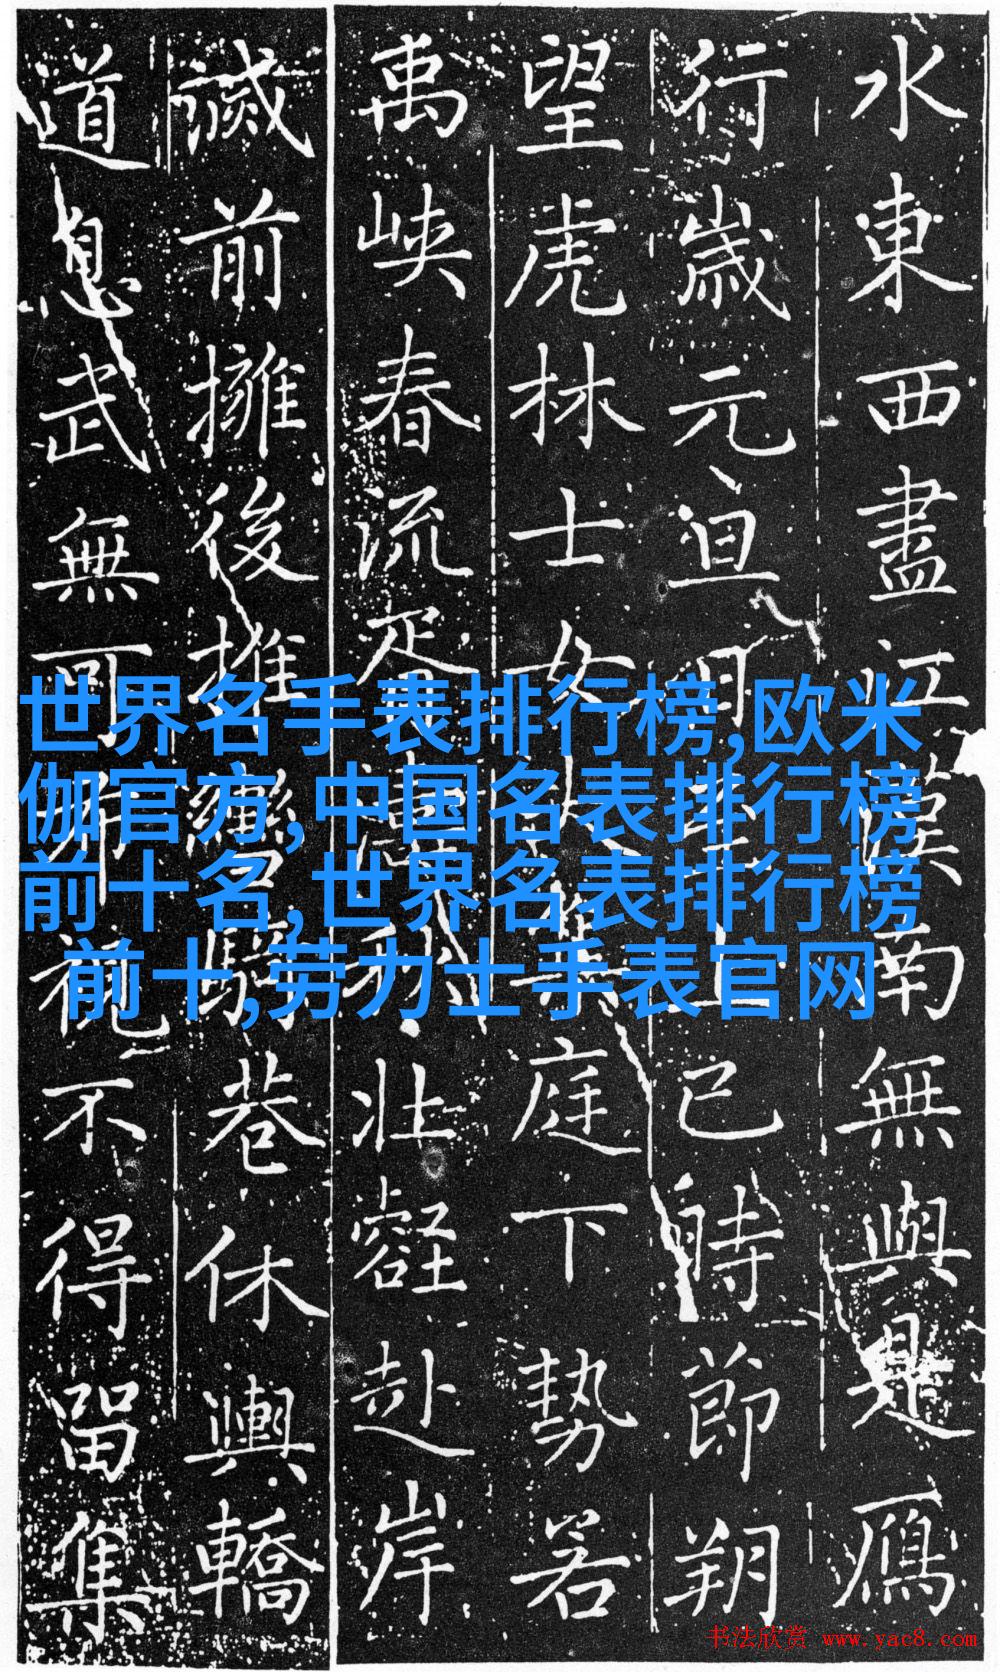 水東西盡江漢南無與是鴈
行歲元旦月上已時節朔
望虎林士女集庭下勢若
禹峽春流壯壑赴岸
滅前擁後推騎巷休輿轎
道息武無可視不得留集
世界名手表排行榜,欧米
伽官方,中国名表排行榜
前十名,世界名表排行榜
前十,劳力士手表官网
书法欣赏 www.yac8.com